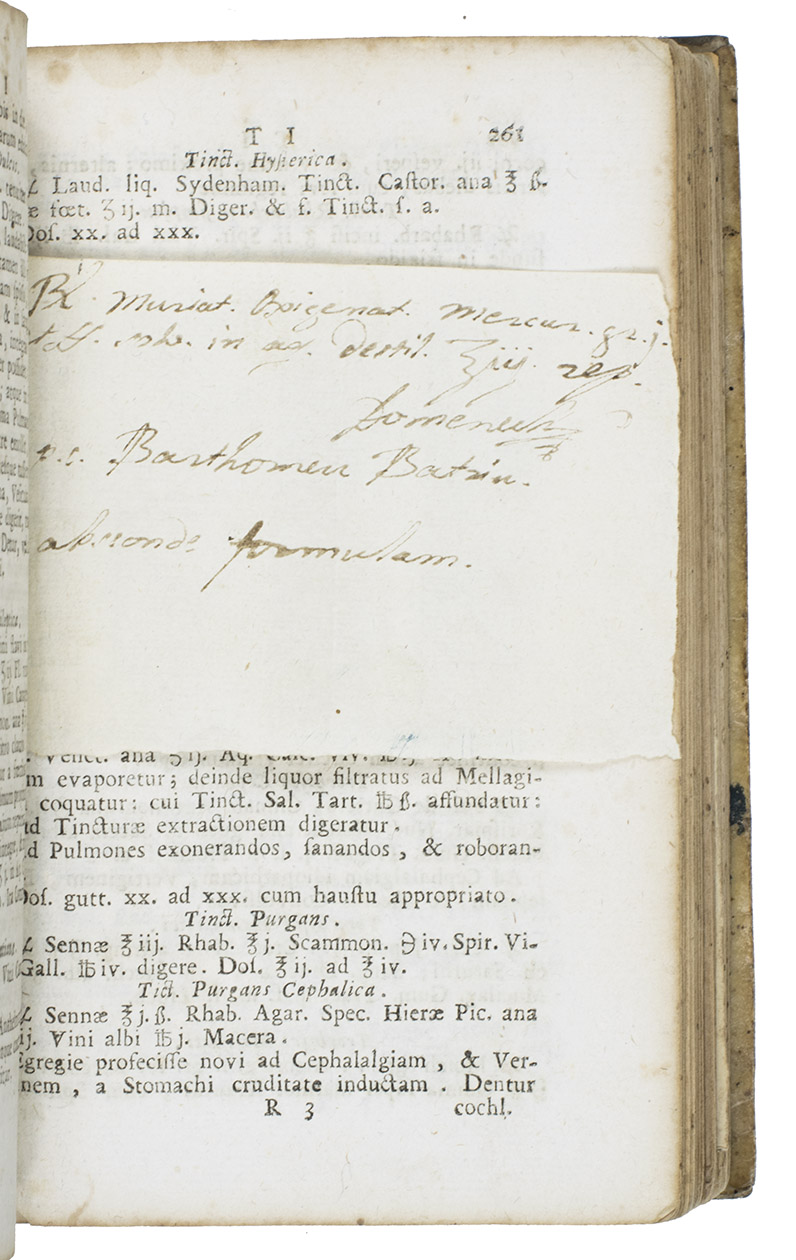 T I 261
Tinct. Hysterica.
Laud. liq. Sydenham. Tinct. Castor. ana ℥ ß.
æ fœt. ʒ ij. m. Diger. & f. Tinct. s. a.
Dos. xx. ad xxx.
Rx. Muriat. Oxigenat. Mercur. gr. j.
in aq. Destil. ʒiij.
Domenech
Barthomeu Batriu.
absconde formulam.
Venet. ana ʒ ij. Aq.
m evaporetur; deinde liquor filtratus ad Mellagi-
coquatur: cui Tinct. Sal. Tart. ℔ ß. affundatur:
ad Tincturæ extractionem digeratur.
d Pulmones exonerandos, sanandos, & roboran-
Dos. gutt. xx. ad xxx. cum haustu appropriato.
Tinct. Purgans.
Sennæ ℥ iij. Rhab. ℥ j. Scammon. ℈ iv. Spir. Vi-
Gall. ℔ iv. digere. Dos. ℥ ij. ad ℥ iv.
Tict. Purgans Cephalica.
Sennæ ℥ j. ß. Rhab. Agar. Spec. Hieræ Pic. ana
ij. Vini albi ℔ j. Macera.
gregie profecisse novi ad Cephalalgiam, & Ver-
nem, a Stomachi cruditate inductam. Dentur
R 3 cochl.